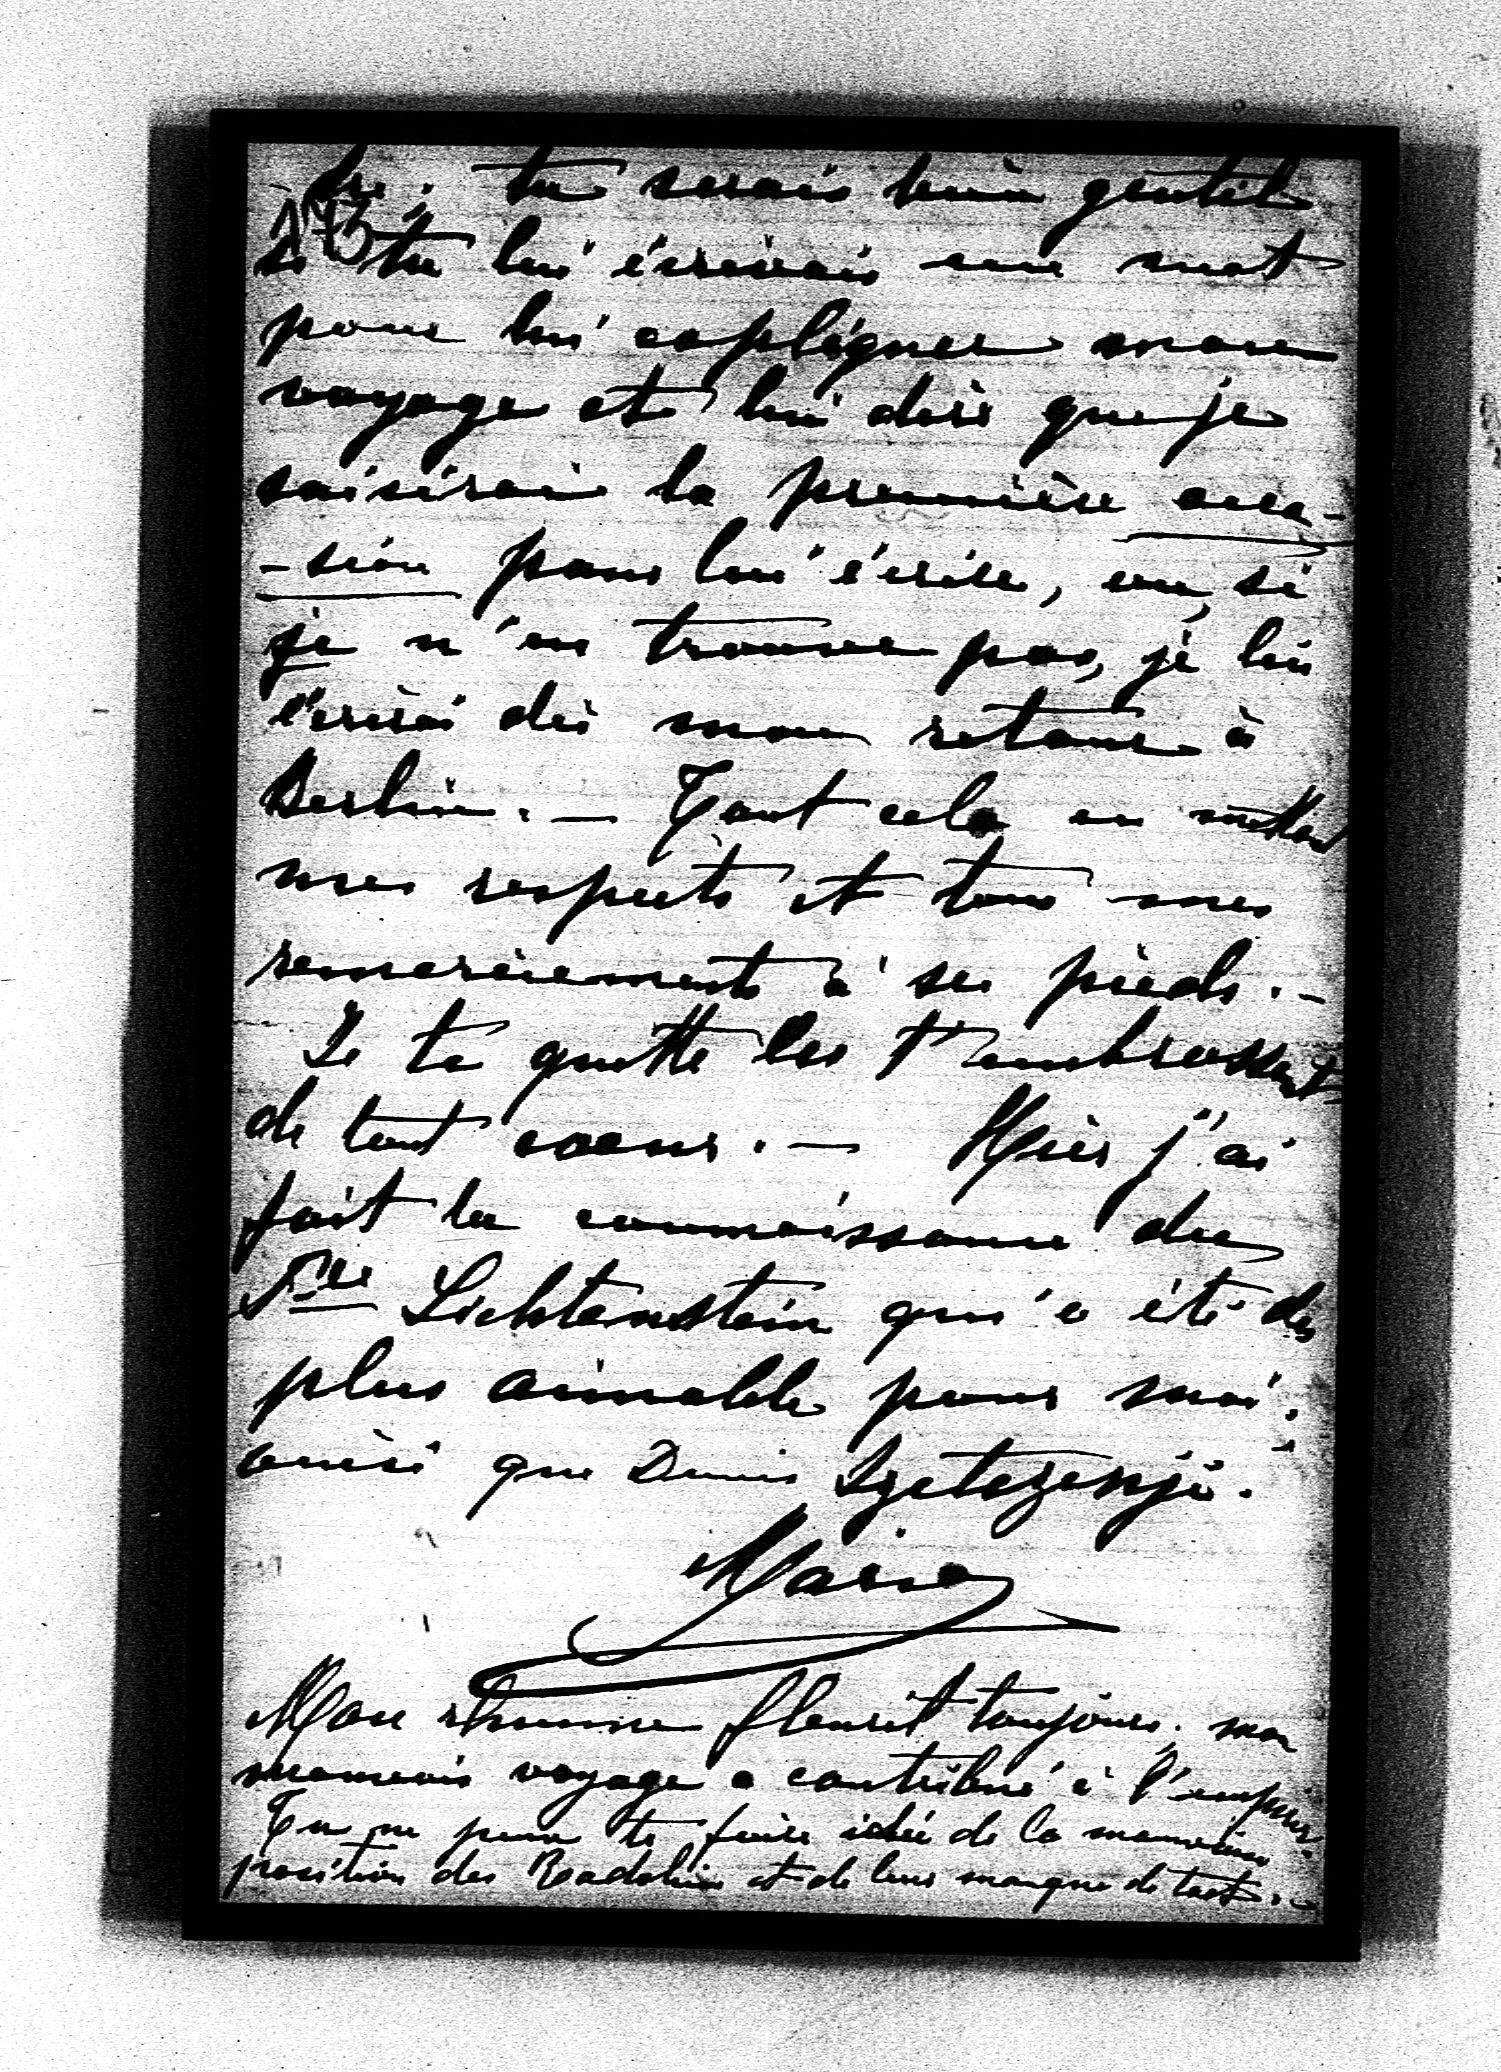 tu serais bien gentil
173
si tu lui écrivais un mot
pour lui expliquer mon
voyage et lui dire que je
saisirai la première occa-
-sion pour lui écrire, ou, si
je n'en trouve pas, je lui
écrirai dès mon retour à
Berlin. — Tout cela en mettant
mes respects et tous mes
remerciements à ses pieds. —
Je te quitte en t'embrassant
de tout coeur. — Hier j'ai
fait la connaissance du
Pce Lichtenstein qui a été des
plus aimable pour moi,
ainsi que Denis Szetszenji.
Marie
Mon rhume fleurit toujours, mon
mauvais voyage a contribué à l'empirer.
Tu ne peux te faire idée de la mauvaise
position des Radolin et de leur manque de tact. —